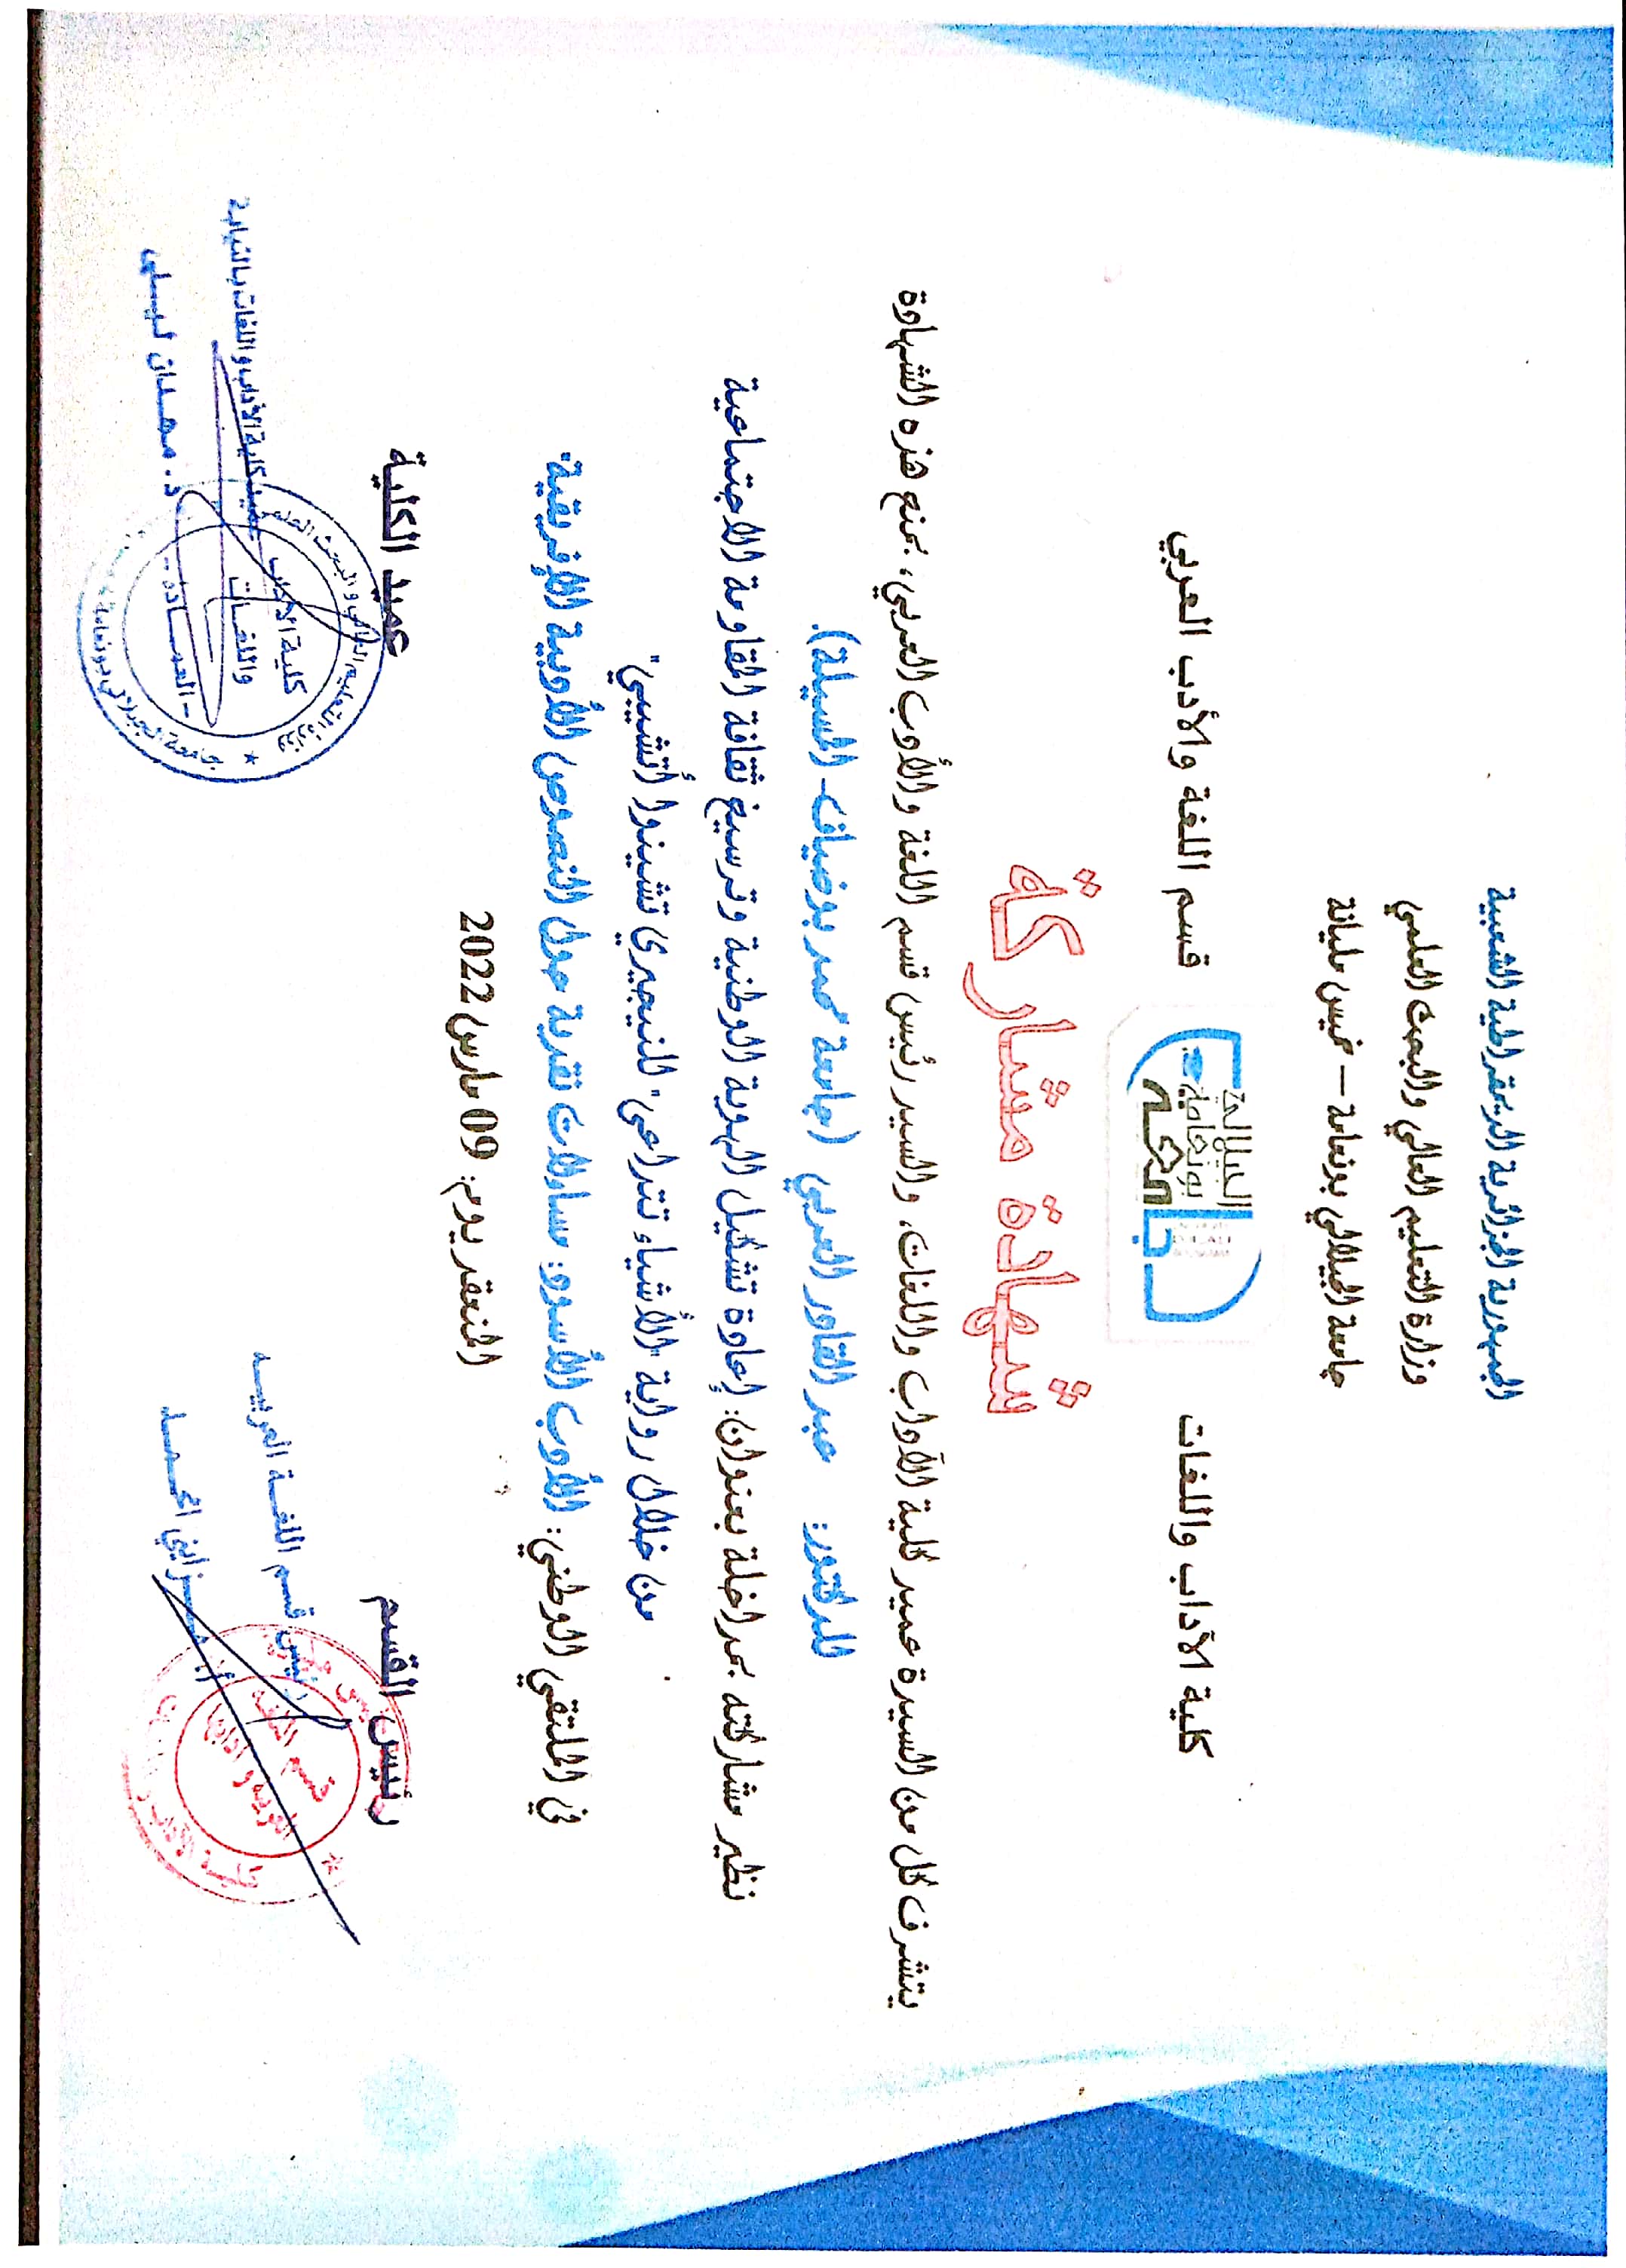 الجمهورية الجزائرية الديمقراطية الشعبية
وزارة التعليم العالي والبحث العلمي
جامعة الجيلالي بونعامة – خميس مليانة
كلية الآداب واللغات
جامعة
الجيلالي
بونعامة
قسم اللغة والأدب العربي
شهادة مشاركة
يتشرف كل من السيدة عميد كلية الآداب واللغات، والسيد رئيس قسم اللغة والأدب العربي، بمنح هذه الشهادة
للدكتور: عبد القادر العربي (جامعة محمد بوضياف- المسيلة).
نظير مشاركته بمداخلة بعنوان: إعادة تشكيل الهوية الوطنية وترسيخ ثقافة المقاومة الاجتماعية
من خلال رواية "الأشياء تتداعى" للنيجيري تشينوا أتشيبي"
في الملتقي الوطني: الأدب الأسود: مساءلات نقدية حول النصوص الأدبية الإفريقية"
المنعقد يوم: 09 مارس 2022
رئيس القسم
رئيس قسم اللغة العربية
عميد الكلية
عميد كلية الآداب و اللغات بالنيابة
كلية الآداب
واللغات
- العمادة -
وزارة التعليم العالي و البحث العلمي
قسم اللغة
العربية و آدابها